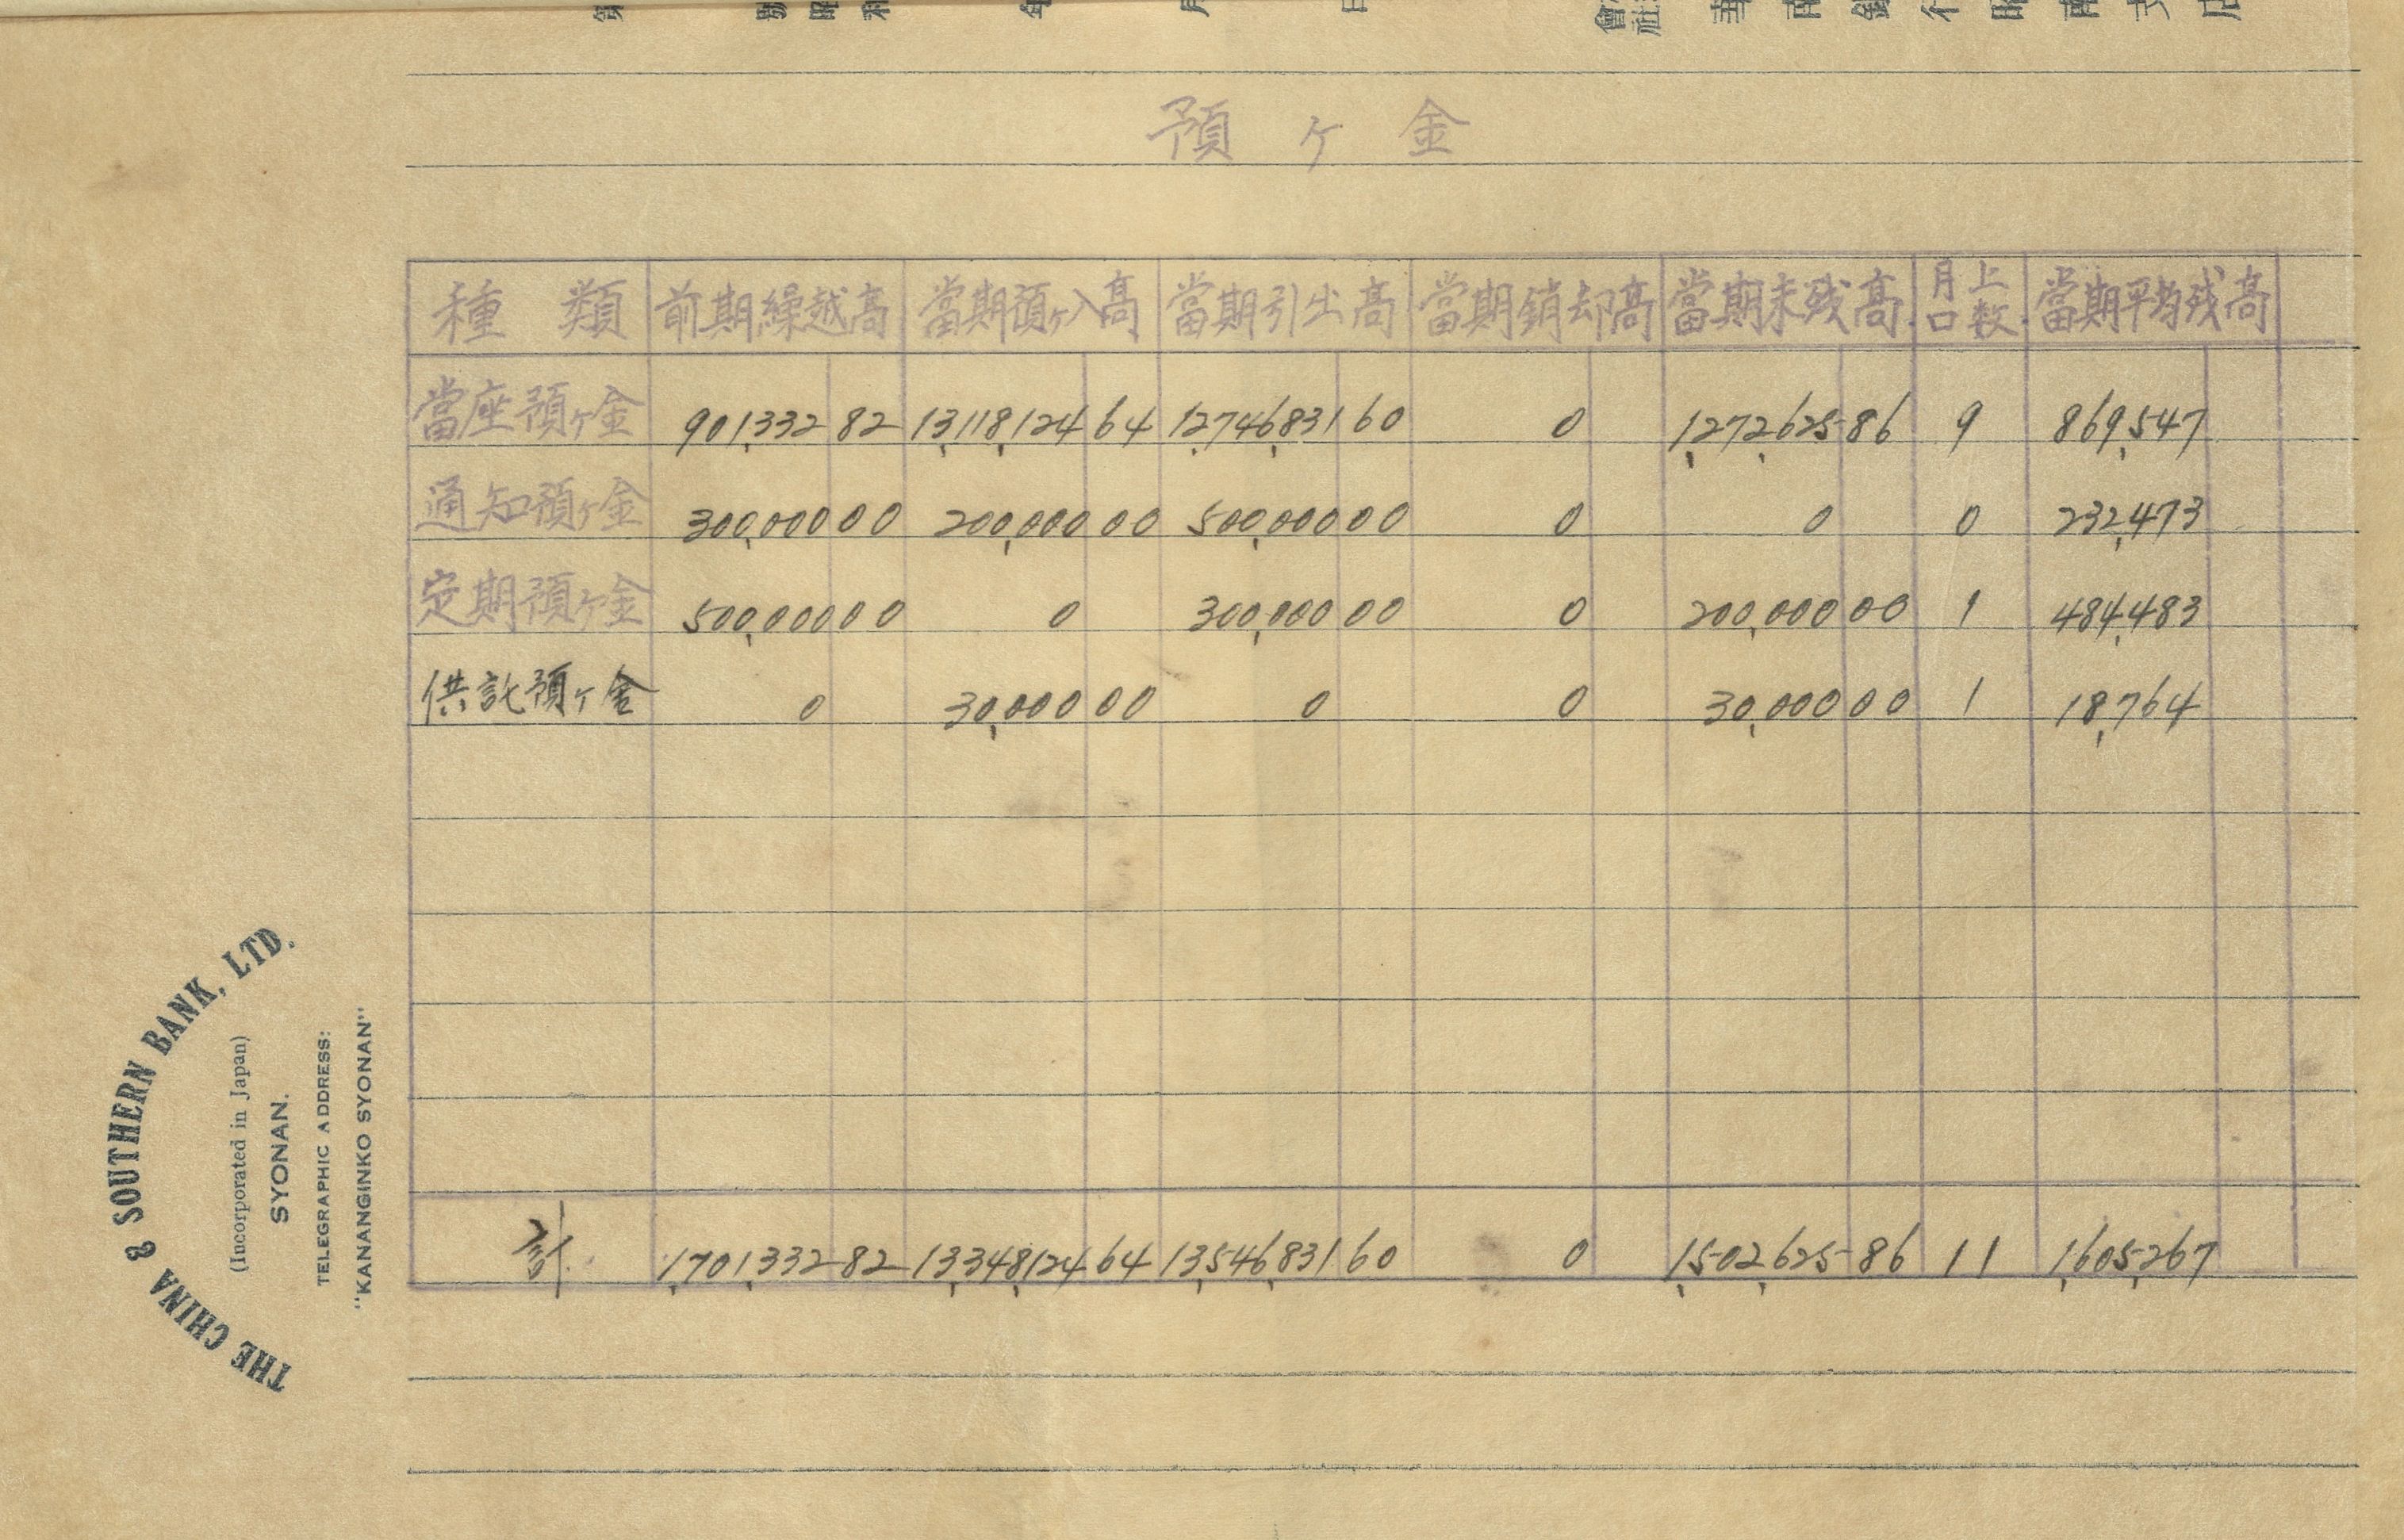 預ヶ金
種類 前期繰越高 當期預ヶ入高 當期引出高 當期銷却高 當期末残高 月上口数 當期平均残高
當座預ヶ金 901,332 82 13,118,124 64 12,746,831 60 0 1,272,625 86 9 869,547
通知預ヶ金 300,000 00 200,000 00 500,000 00 0 0 0 232,473
定期預ヶ金 500,000 00 0 300,000 00 0 200,000 00 1 484,483
供託預ヶ金 0 30,000 00 0 0 30,000 00 1 18,764
計 1,701,332 82 13,348,124 64 13,546,831 60 0 1,502,625 86 11 1,605,267
THE CHINA & SOUTHERN BANK, LTD.
(Incorporated in Japan)
SYONAN.
TELEGRAPHIC ADDRESS:
"KANANGINKO SYONAN"